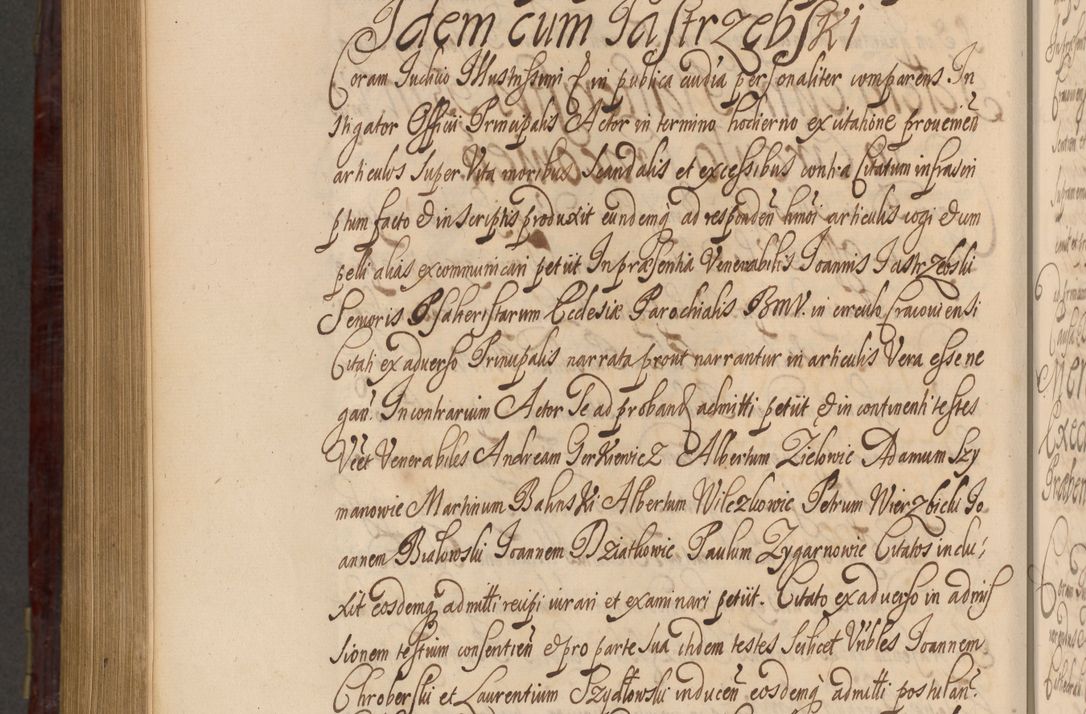 Idem cum Jastrzębski
Coram Judicio Illustrissimi & in publica audia personaliter comparens In
stigator Officii Principalis Actor in termino hodierno ex citatione provenien̄
articulos super Vita moribus scandalis et excessibus contra Citatum infrascri
ptum facto & in scriptis produxit eundemq̢ ad responden̄ hmōi articulis cogi & com
pelli alias excommunicari petiit In præsentia Venerabilis Joannis Jastrzebski
Senioris Psalteristarum Ecclesiæ Parochialis BMV. in circulo Cracoviensi
Citati ex adverso Principalis narrata prout narrantur in articulis Vera esse ne
gan̄. In contrarium Actor Se ad proband admitti petiit & in continenti testes
Vēēt Venerabiles Andream Gerkiewicz Albertum Zielowic Adamum Szy
manowic Martinum Balinski Albertum Wilczkowic Petrum Wierzbicki Jo
annem Bialowski Joannem Dziatkowic Paulum Zygarnowic Citatos indu:
xit eosdemq̢ admitti recipi iurari et examinari petiit. Citato ex adverso in admis
sionem testium consentien̄ & pro parte sua itidem testes Scilicet Vnbles Joannem
Chroberski et Laurentium Szydłowski inducen̄ eosdemq̢ admitti postulan̄.